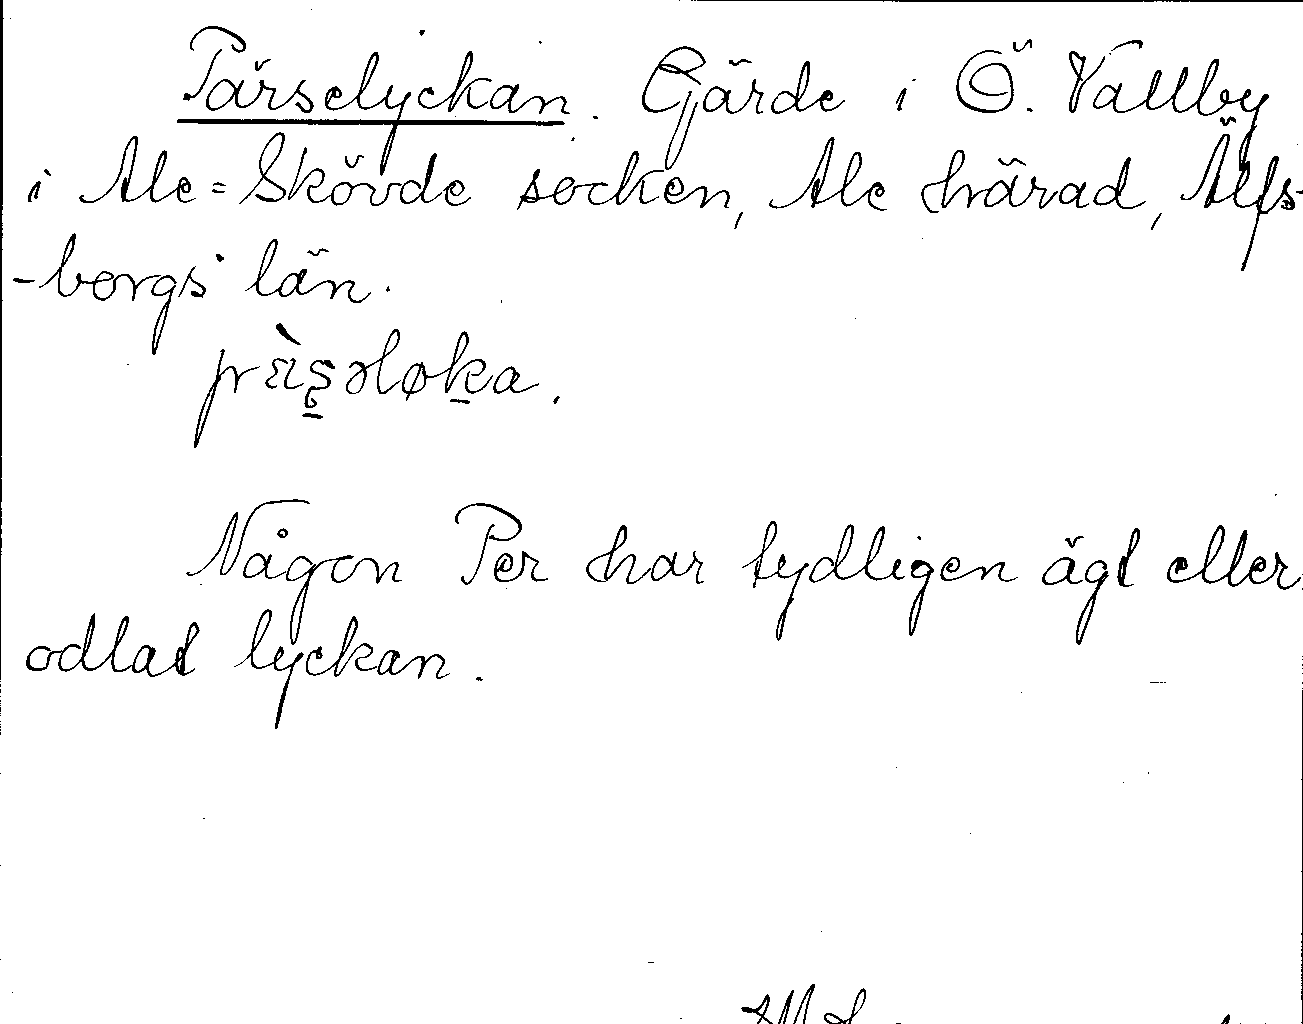 Pärselyckan. Gärde i Ö. Vallby
i Ale-Skövde socken, Ale härad, Älfs-
-borgs län.
Någon Per har tydligen ägt eller
odlat lyckan.